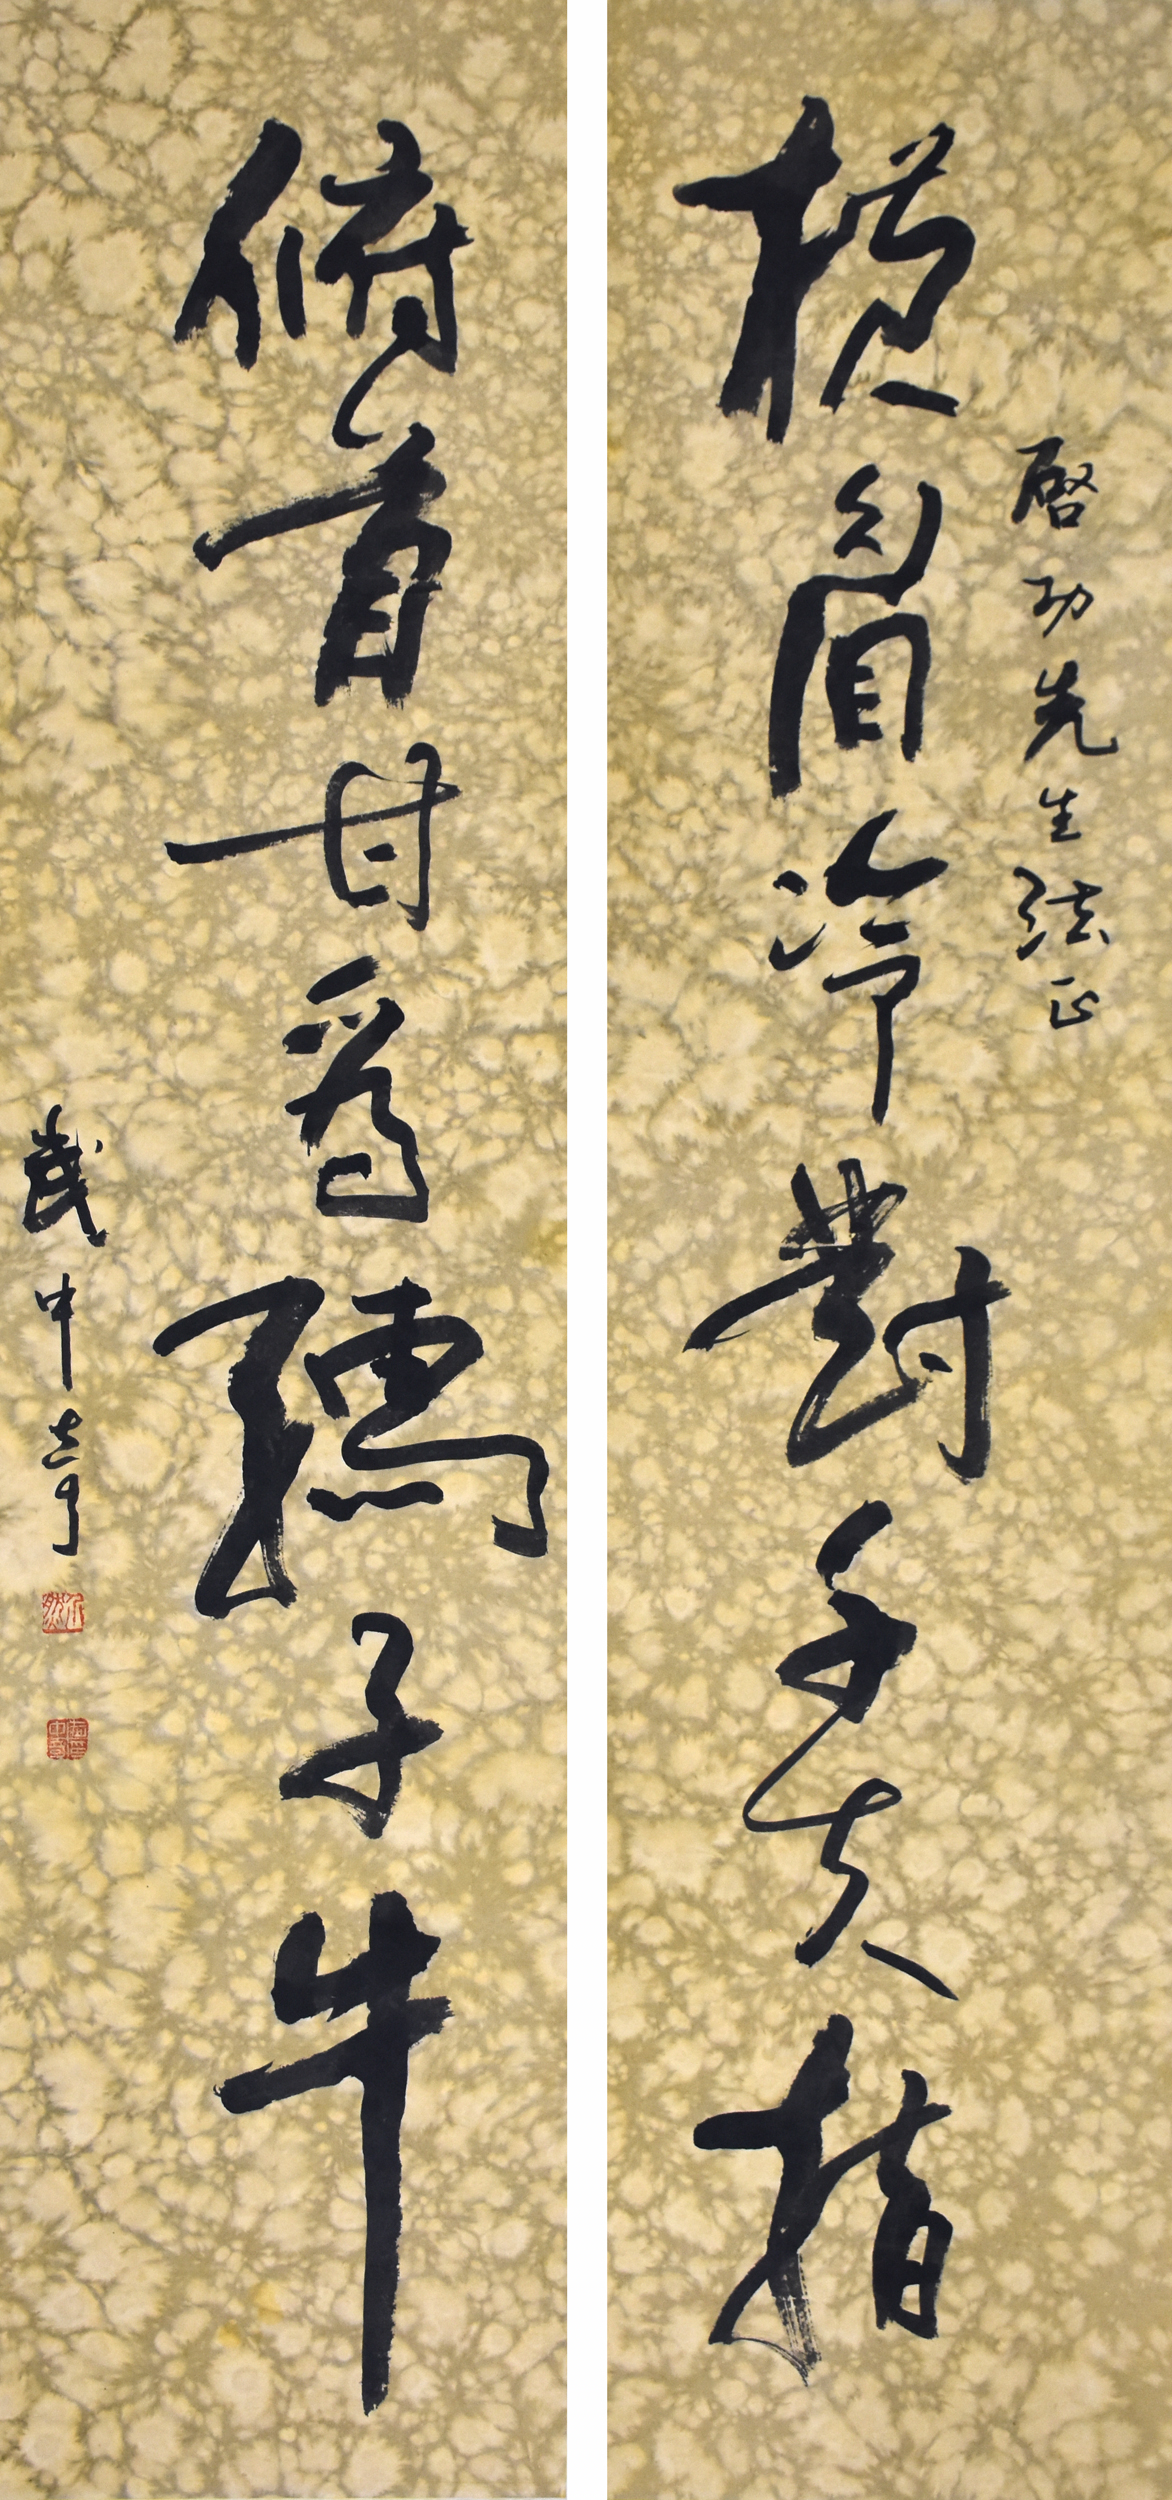 啓功先生法正
橫眉冷對千夫指
俯首甘爲孺子牛
武中奇